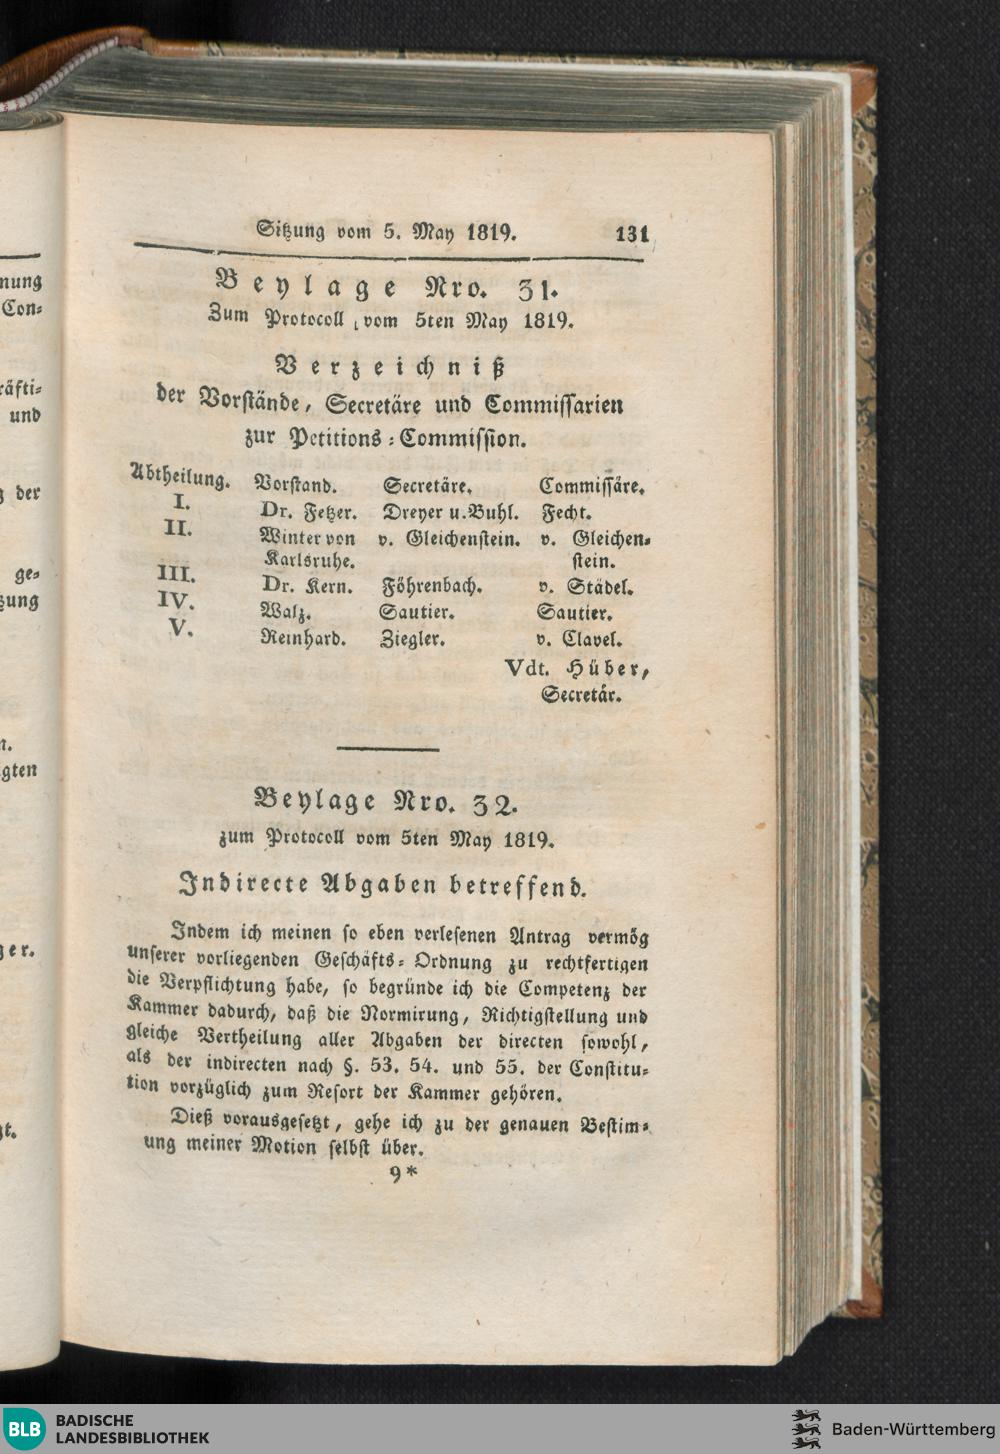 Sitzung vom 5. May 1819. 131
Beylage Nro. 31.
Zum Protocoll vom 5ten May 1819.
Verzeichniß
der Vorstände, Secretäre und Commissarien
zur Petitions-Commission.
Abtheilung. Vorstand. Secretäre. Commissäre.
I. Dr. Fetzer. Dreyer u. Buhl. Fecht.
II. Winter von v. Gleichenstein. v. Gleichen-
Karlsruhe. stein.
III. Dr. Kern. Föhrenbach. v. Städel.
IV. Walz. Sautier. Sautier.
V. Reinhard. Ziegler. v. Clavel.
Vdt. Hüber,
Secretär.
Beylage Nro. 32.
zum Protocoll vom 5ten May 1819.
Indirecte Abgaben betreffend.
Indem ich meinen so eben verlesenen Antrag vermög
unserer vorliegenden Geschäfts-Ordnung zu rechtfertigen
die Verpflichtung habe, so begründe ich die Competenz der
Kammer dadurch, daß die Normirung, Richtigstellung und
gleiche Vertheilung aller Abgaben der directen sowohl,
als der indirecten nach §. 53. 54. und 55. der Constitu-
tion vorzüglich zum Resort der Kammer gehören.
Dieß vorausgesetzt, gehe ich zu der genauen Bestim-
ung meiner Motion selbst über.
9*
nung
Con-
räfti-
und
der
ge-
zung
gten
ger.
BLB BADISCHE
LANDESBIBLIOTHEK
Baden-Württemberg